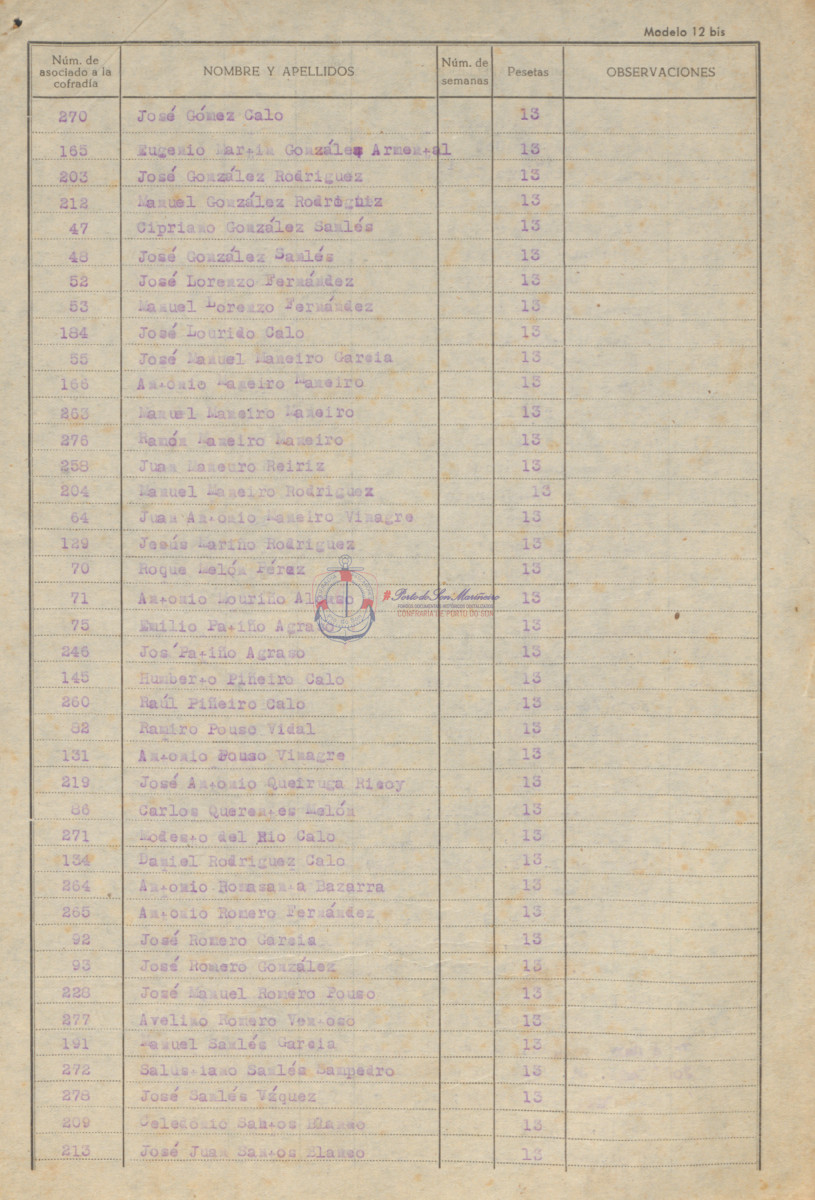 Modelo 12 bis
Núm. de asociado a la cofradía NOMBRE Y APELLIDOS Núm. de semanas Pesetas OBSERVACIONES
270 José Gómez Calo 13
165 Eugenio Martin González Armental 13
203 José González Rodriguez 13
212 Manuel González Rodreguiz 13
47 Cipriano González Samlés 13
48 José González Samlés 13
52 José Lorenzo Fernández 13
53 Manuel Lorenzo Fernández 13
184 José Lourido Calo 13
55 José Manuel Maneiro Garcia 13
166 Antonio Maneiro Maneiro 13
263 Manuel Maneiro Maneiro 13
276 Ramón Maneiro Maneiro 13
258 Juan Maneuro Reiriz 13
204 Manuel Maneiro Rodriguez 13
64 Juan Antonio Maneiro Vinagre 13
129 Jesús Mariño Rodriguez 13
70 Roque Melón Pérez 13
71 Antonio Mouriño Alonso 13
#Porto do Son Mariñeiro
CONFRARÍA DE PORTO DO SON
75 Emilio Patiño Agraso 13
246 Jos´Patiño Agraso 13
145 Humberto Piñeiro Calo 13
260 Raúl Piñeiro Calo 13
82 Ramiro Pouso Vidal 13
131 Antonio Pouso Vinagre 13
219 José Antonio Queiruga Rieoy 13
86 Carlos Querentes Melón 13
271 Modesto del Rio Calo 13
134 Daniel Rodriguez Calo 13
264 Antonio Romasanta Bazarra 13
265 Antonio Romero Fernández 13
92 José Romero Garcia 13
93 José Romero González 13
228 José Manuel Romero Pouso 13
277 Avelino Romero Ventoso 13
191 Manuel Samlés Garcia 13
272 Salustiano Samlés Sampedro 13
278 José Samlés Váquez 13
209 Celedonio Santos Blanco 13
213 José Juan Santos Blanco 13